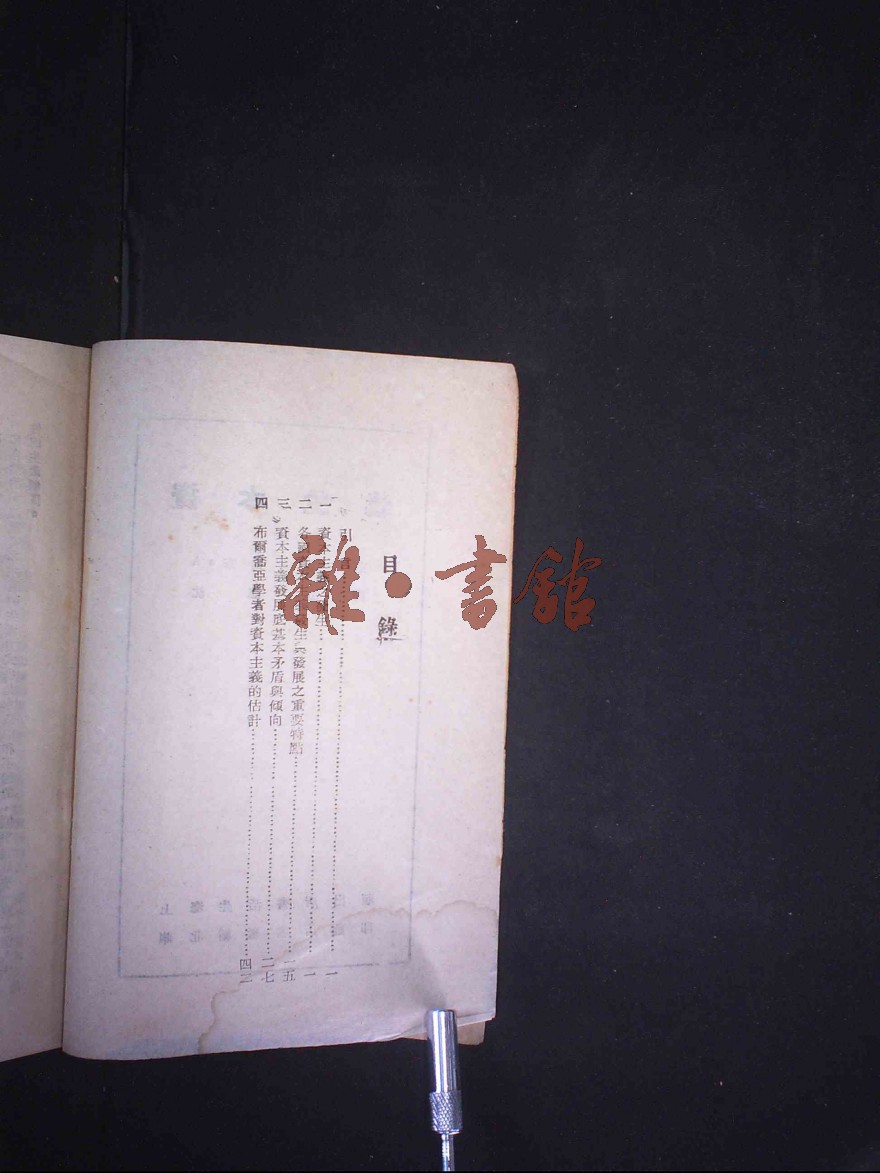 目錄
引 一
一 資本主義 生 一
二 各 生與發展之重要特點 一五
三 資本主義發展底基本矛盾與傾向 二七
四 布爾喬亞學者對資本主義的估計 四二
雜·書館